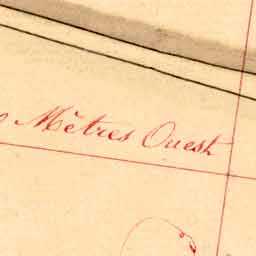 Mètres Ouest